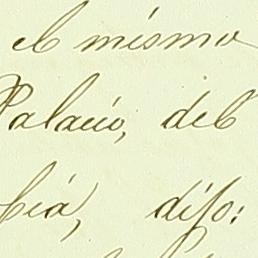 el mismo
Palacio, del
bía, dijo: